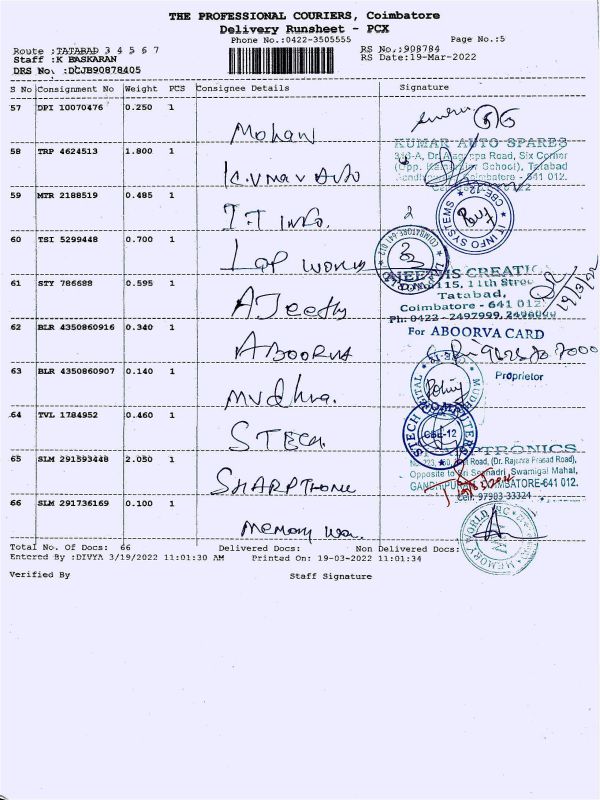 THE PROFESSIONAL COURIERS, Coimbatore
Delivery Runsheet - PCX
Phone No.:0422-3505555 Page No.:5
Route :TATABAD 3 4 5 6 7 RS No.:908784
Staff :K BASKARAN RS Date:19-Mar-2022
DRS No. :DCJB90878405
S No Consignment No Weight PCS Consignee Details Signature
57 DPI 10070476 0.250 1
Mohan
KUMAR AUTO SPARES
58 TRP 4624513 1.800 1
Kumar Auto
59 MTR 2188519 0.485 1
I.T Info.
IT INFO SYSTEMS CBE-12
60 TSI 5299448 0.700 1
Lap World
61 STY 786688 0.595 1
115, 11th Street
Tatabad,
Coimbatore - 641 012
Ph. 0422 - 2497999,
AJeeth
19/3/22
62 BLR 4350860916 0.340 1
For ABOORVA CARD
ABOORVA
Proprietor
63 BLR 4350860907 0.140 1
mudhra.
64 TVL 1784952 0.460 1
STECH COMPUTERS CBE-12
STECH
65 SLM 291593448 2.050 1
Road, (Dr. Rajendra Prasad Road),
Opposite to Sri Seshadri, Swamigal Mahal,
GANDHIPURAM, COIMBATORE-641 012.
Cell: 97903 33324
SHARPTRONIC
66 SLM 291736169 0.100 1
MEMORY WORLD INC
memory wor.
Total No. Of Docs: 66 Delivered Docs: Non Delivered Docs:
Entered By :DIVYA 3/19/2022 11:01:30 AM Printed On: 19-03-2022 11:01:34
Verified By Staff Signature